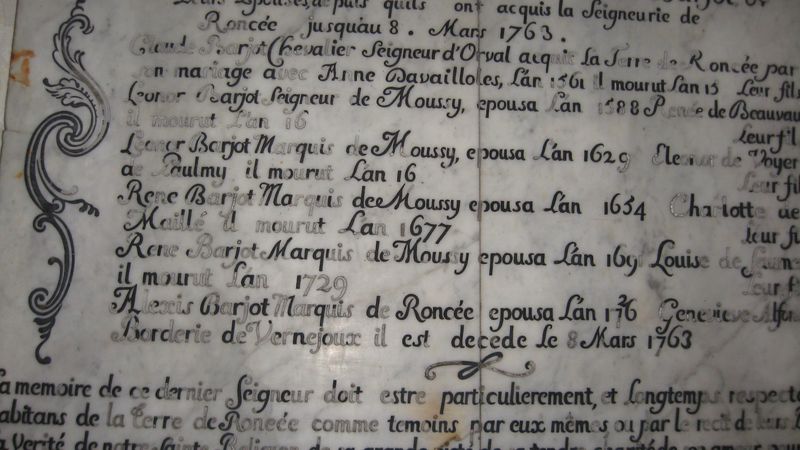 Leurs Epouses, depuis quils ont acquis la Seigneurie de
Roncée jusquàu 8. Mars 1763.
Claude Barjot Chevalier Seigneur d'Orval acquis La Terre de Roncée par
son mariage avec Anne Davailloles, L'án 1561 il mourut L'an 15 Leur fils
Leonor Barjot Seigneur de Moussy, epousa L'án 1588 Renée de Beauvau
il mourut L'an 16
Leur fil
Leonor Barjot Marquis de Moussy, epousa L'án 1629 de Voyer
de Paulmy il mourut L'án 16
Leur fil
Rene Barjot Marquis de Moussy epousa L'án 1654 Charlotte de
Maillé il mourut L'an 1677
leur fi
Rene Barjot Marquis de Moussy epousa L'án 1691 Louise de
il mourut L'án 1729
Leur f
Alexis Barjot Marquis de Roncée epousa L'án Genevieve
Borderie de Vernejoux il est decede Le 8 Mars 1763
La memoire de ce dernier Seigneur doit estre particulierement, et Longtemps respecte
abitans de la Terre de Roncée comme temoins par eux mêmes ou par le recit de leurs
a Verité de notre Sainte Religion